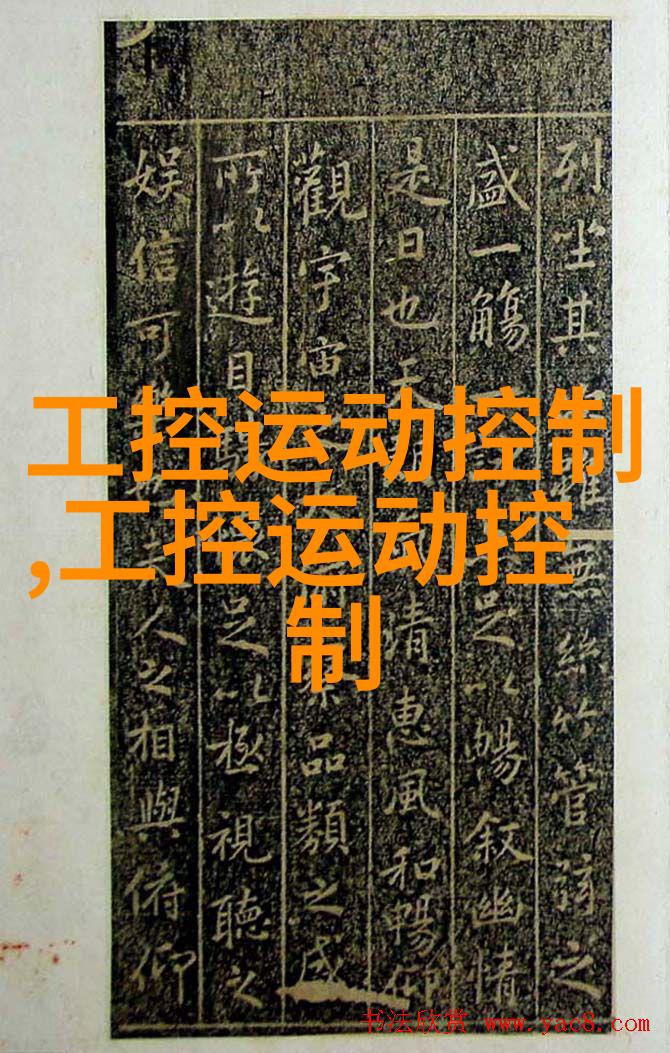 列坐其雖無絲竹管弦之
盛一觴足以暢叙幽情
是日也天清惠風和暢仰
觀宇宙品類之盛
所以遊目騁足以極視聽之
娛信可人之相與俯仰
工控运动控制
,工控运动控
制
书法欣赏 www.yac8.com